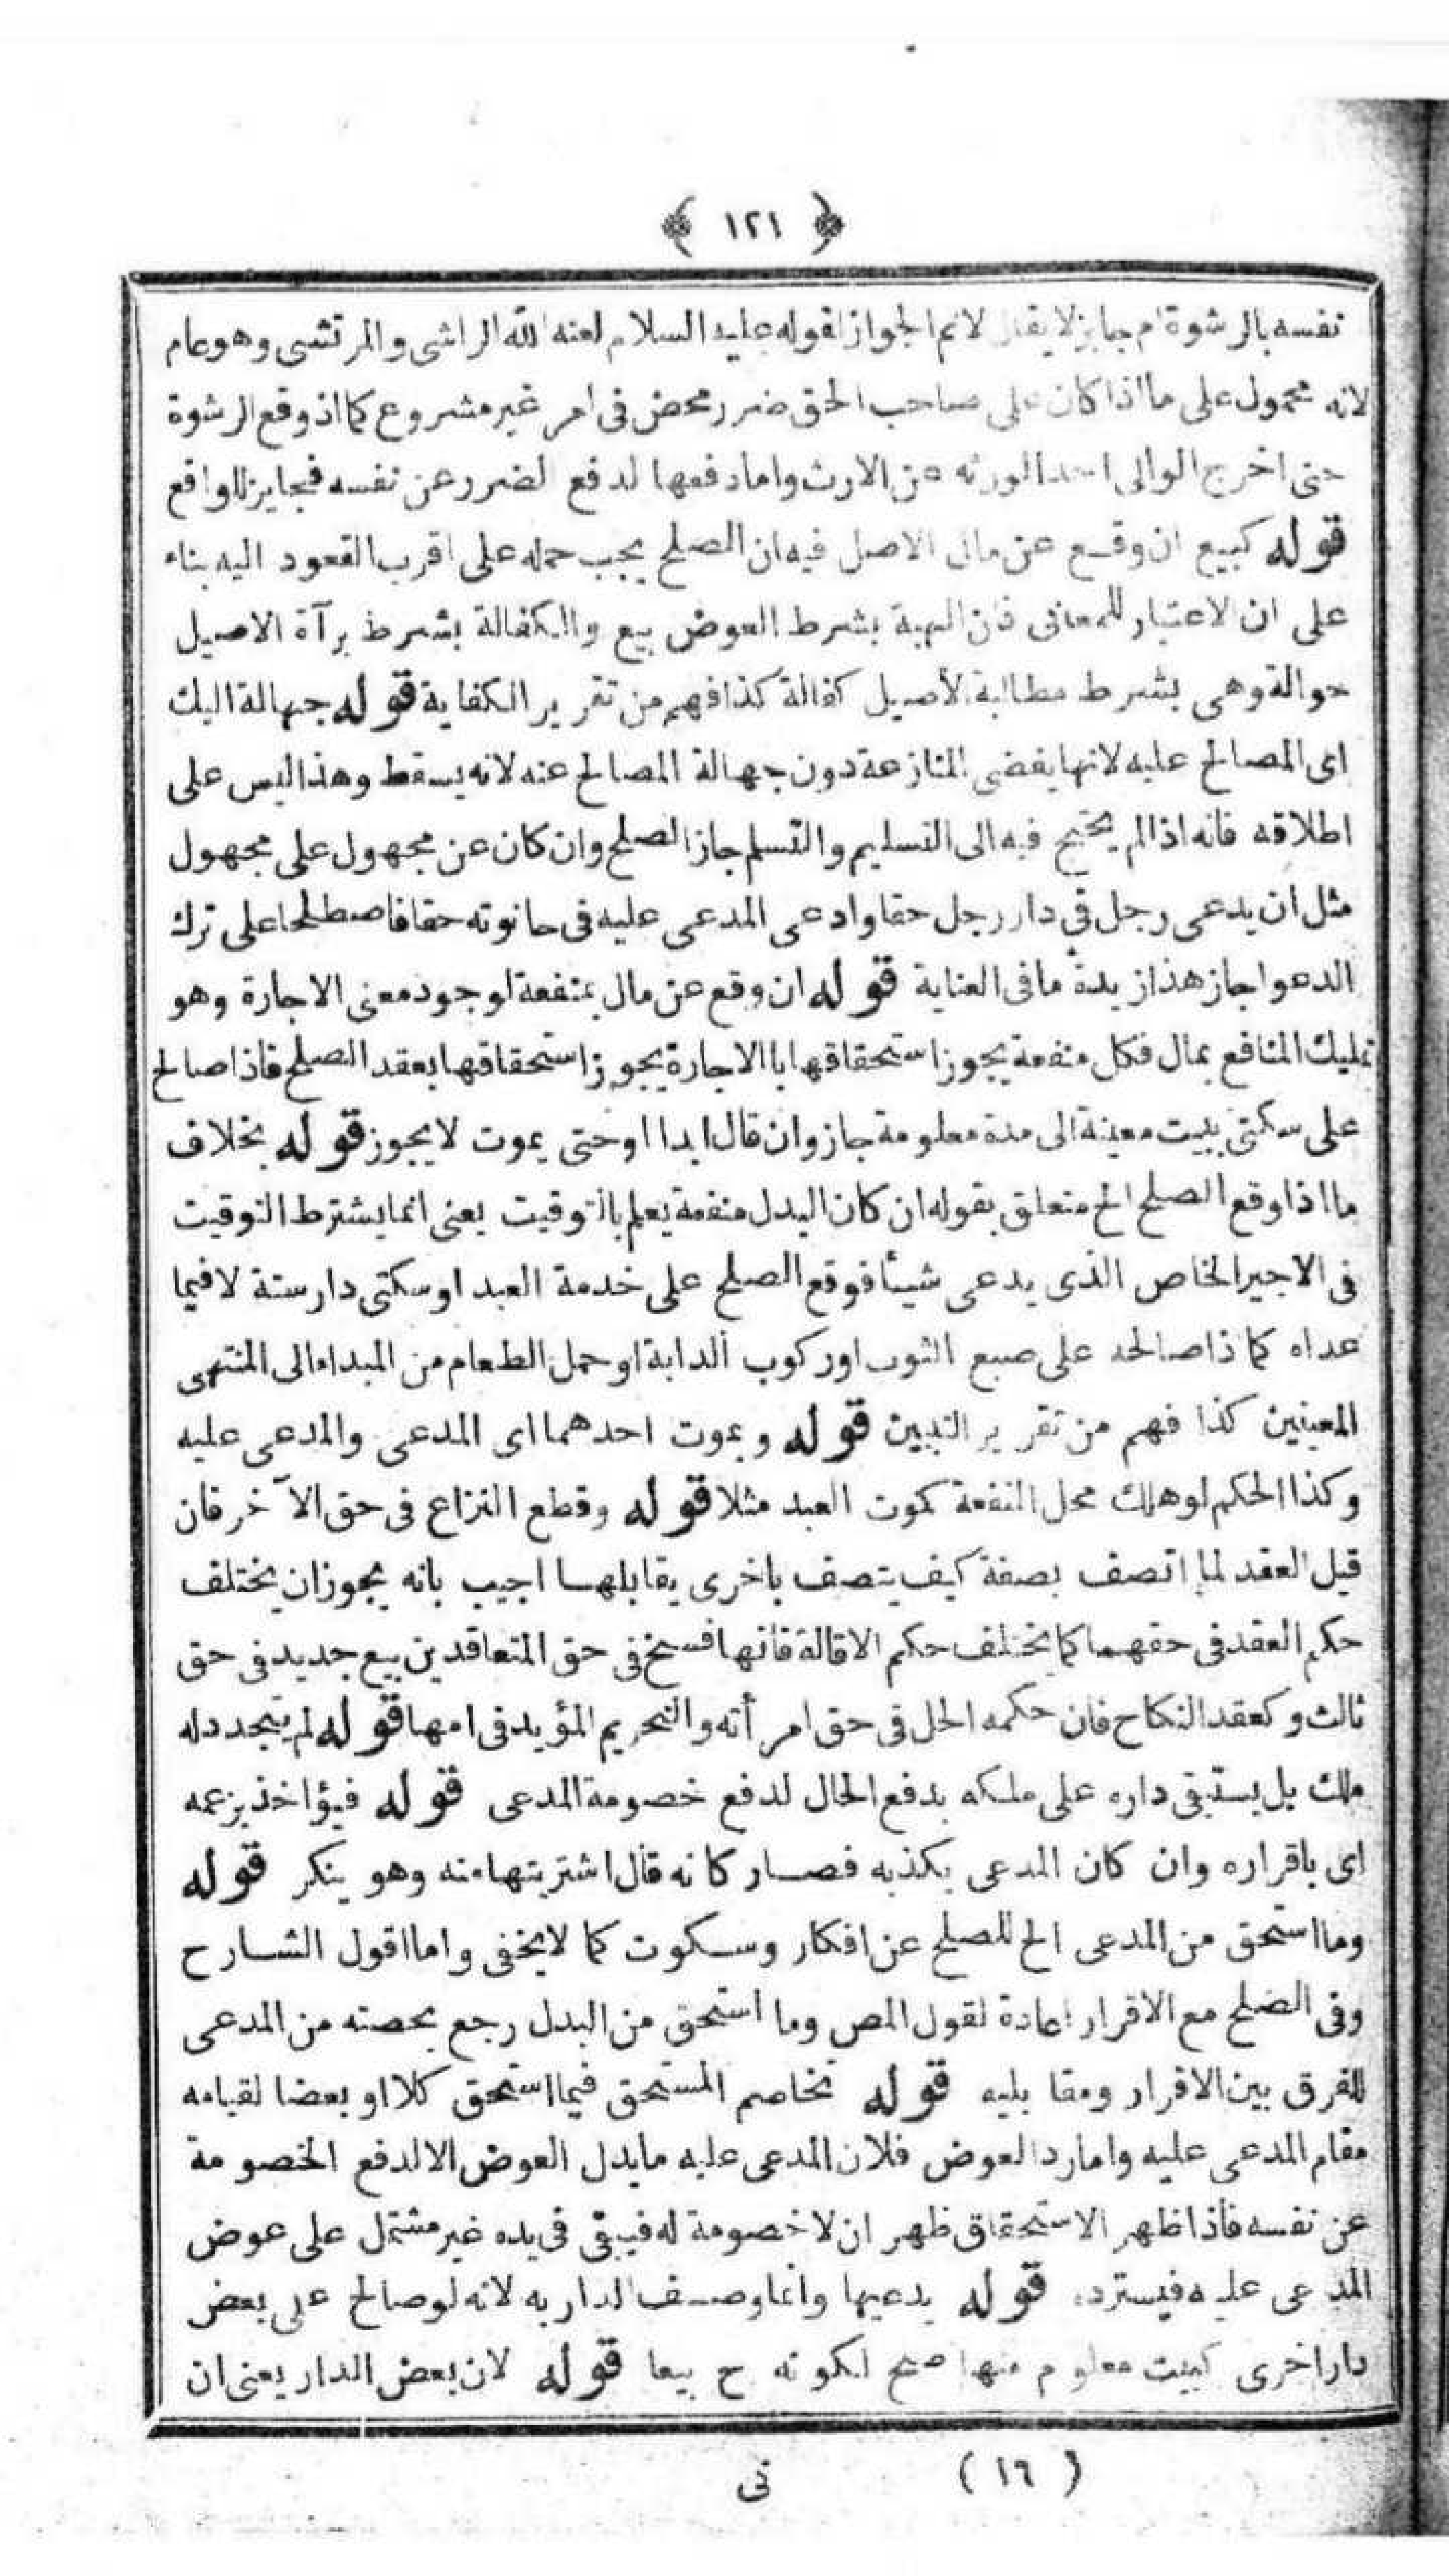 ﴿ ١٢١ ﴾
نفسه بالرشوة ام جايز لا يقال لانم الجواز لقوله عليه السلام لعنة الله الراشى والمرتشى وهو عام
لانه محمول على ما اذا كان على صاحب الحق ضرر محض فى امر غير مشروع كما اذ وقع الرشوة
حتى اخرج الوالى احد الورثه عن الارث واما دفعها لدفع الضرر عن نفسه فجايز للواقع
قوله كبيع ان وقع عن مال الاصل فيه ان الصلح يجب حمله على اقرب العقود اليه بناء
على ان الاعتبار للمعانى فان الهبة بشرط العوض بيع والكفالة بشرط برآة الاصيل
حوالة وهى بشرط مطالبة الأصيل كفالة كذا فهم من تقرير الكفاية قوله جهالة البك
اى المصالح عليه لانها يفضى المنازعة دون جهالة المصالح عنه لانه يسقط وهذا ليس على
اطلاقه فانه اذا لم يحتج فيه الى التسليم والتسلم جاز الصلح وان كان عن مجهول على مجهول
مثل ان يدعى رجل فى دار رجل حقا وادعى المدعى عليه فى حانوته حقا فاصطلحا على ترك
الدعوا جاز هذا زبدة ما فى العناية قوله ان وقع عن مال بمنفعة لوجود معنى الاجارة وهو
تمليك المنافع بمال فكل منفعة يجوز استحقاقها باالاجارة يجوز استحقاقها بعقد الصلح فاذا صالح
على سكنى بيت معينة الى مدة معلومة جاز وان قال ابدا او حتى يموت لا يجوز قوله بخلاف
ما اذا وقع الصلح الخ متعلق بقوله ان كان البدل منفعة يعلم بالتوقيت يعنى انما يشترط التوقيت
فى الاجير الخاص الذى يدعى شيئا فوقع الصلح على خدمة العبد او سكنى دار سنة لا فيما
عداه كما ذا صالحه على صبع الثوب او ركوب الدابة او حمل الطعام من المبداء الى المنتهى
المعينين كذا فهم من تقرير التبيين قوله وبموت احدهما اى المدعى والمدعى عليه
وكذا الحكم لو هلك محل النفعة كموت العبد مثلا قوله وقطع النزاع فى حق الآخر فان
قيل العقد لما اتصف بصفة كيف يتصف باخرى يقابلها اجيب بانه يجوز ان يختلف
حكم العقد فى حقهما كما يختلف حكم الاقالة فانها فسخ فى حق المتعاقدين بيع جديد فى حق
ثالث وكعقد النكاح فان حكمه الحل فى حق امرأته والتحريم المؤيد فى امها قوله لم يتجدد له
ملك بل يستبقى داره على ملكه بدفع الحال لدفع خصومة المدعى قوله فيؤاخذ بزعمه
اى باقراره وان كان المدعى يكذبه فصار كانه قال اشتريتها منه وهو ينكر قوله
وما استحق من المدعى الخ للصلح عن افكار وسكوت كما لا يخفى واما اقول الشارح
وفى الصلح مع الاقرار اعادة لقول المص وما استحق من البدل رجع بحصته من المدعى
للفرق بين الاقرار ومقابليه قوله تخاصم المستحق فيما استحق كلا او بعضا لقيامه
مقام المدعى عليه واما رد العوض فلان المدعى عليه ما يدل العوض الا لدفع الخصومة
عن نفسه فأذا ظهر الاستحقاق ظهر ان لا خصومة له فيبقى فى يده غير مشتمل على عوض
المدعى عليه فيسترده قوله يدعيها وانما وصف الدار به لانه لو صالح على بعض
دار اخرى كبيت معلوم منها صح لكونه ح بيعا قوله لان بعض الدار يعنى ان
( ١٦ ) نى